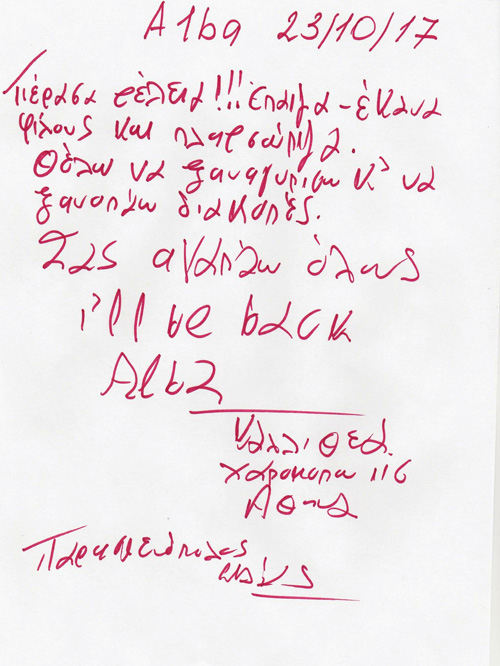 Alba 23/10/17
Πέρασα τέλεια!!! Έπαιξα - έκανα
φίλους και
Θέλω να ξαναγυρίσω κ' να
ξανασπάω διακοπές.
Σας αγαπάω όλους
i'll be back
Alba
Καλλιθέα.
Χαροκοπου 116
Αθηνα